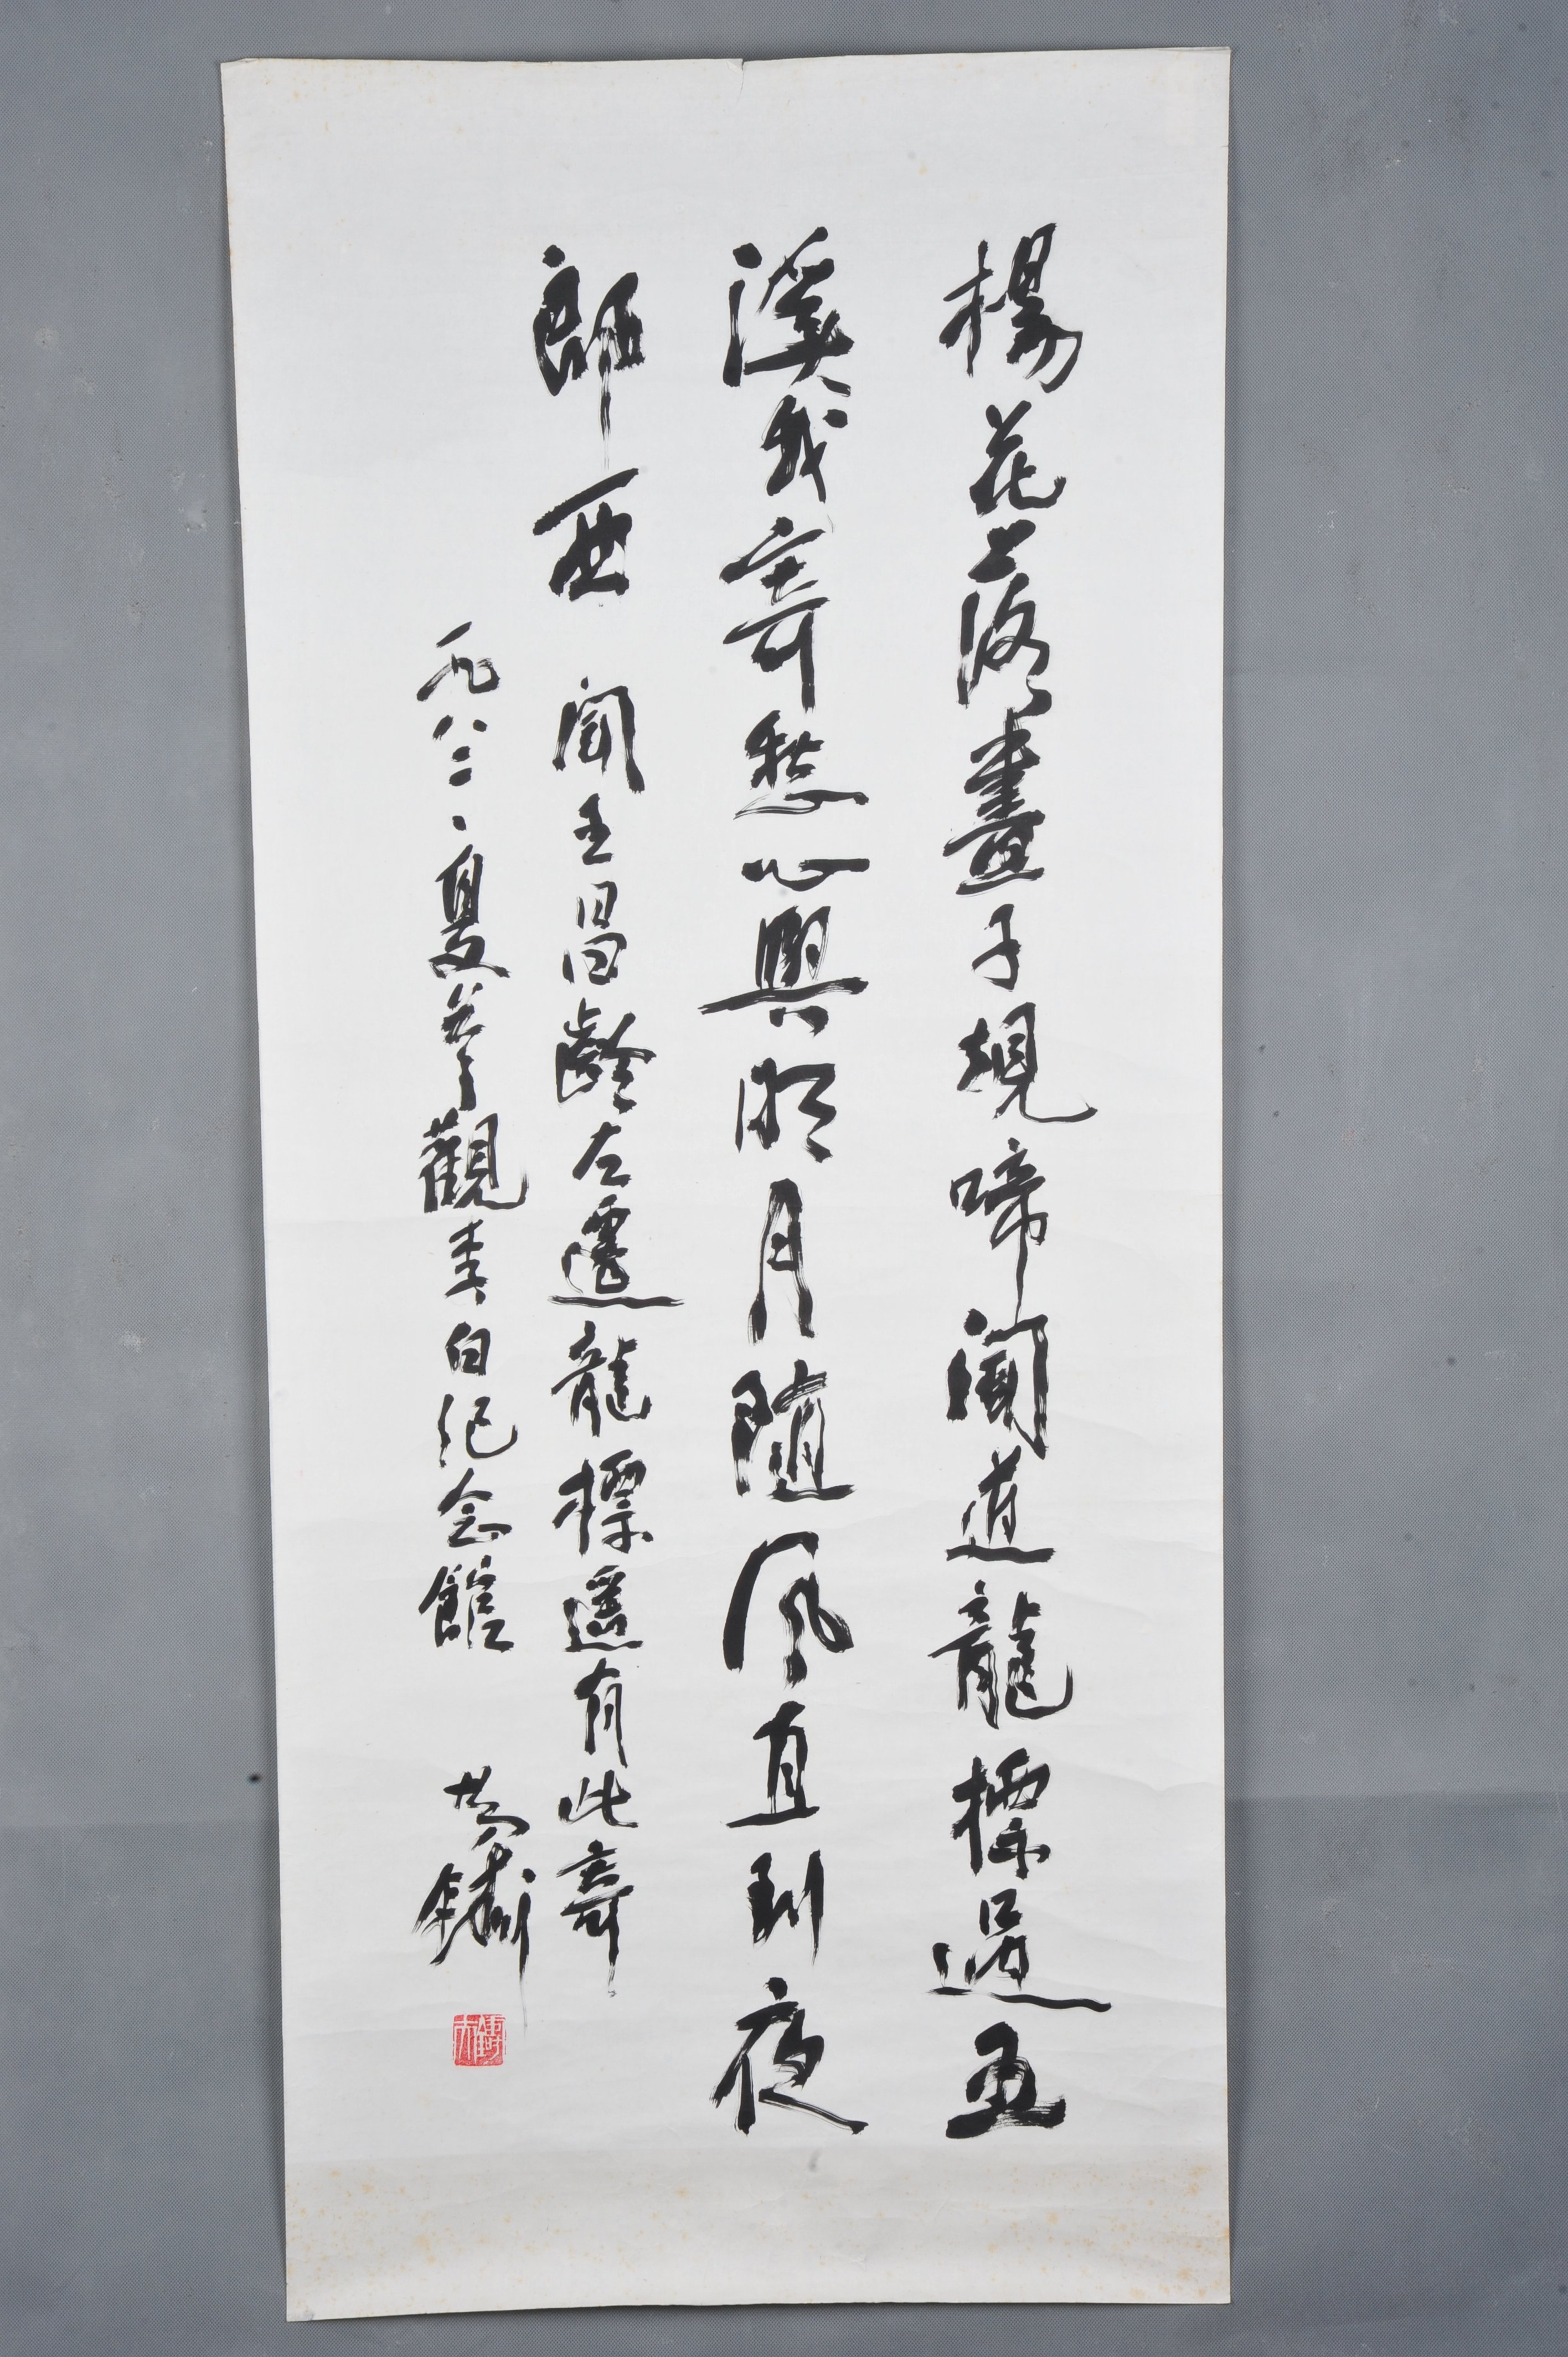 楊花落盡子規啼聞道龍標過五
溪我寄愁心與明月隨風直到夜
郎西 聞王昌齡左遷龍標遥有此寄
一九八二、夏參觀李白紀念館